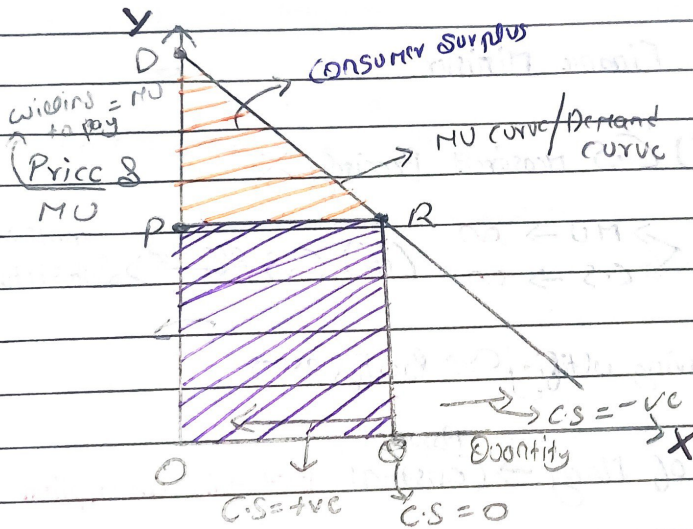 Y
D
Consumer Surplus
willing = MU
to pay
Price &
MU
MU curve/Demand
curve
P
R
C.S = -ve
X
O
Q
Quantity
C.S = +ve
C.S = 0